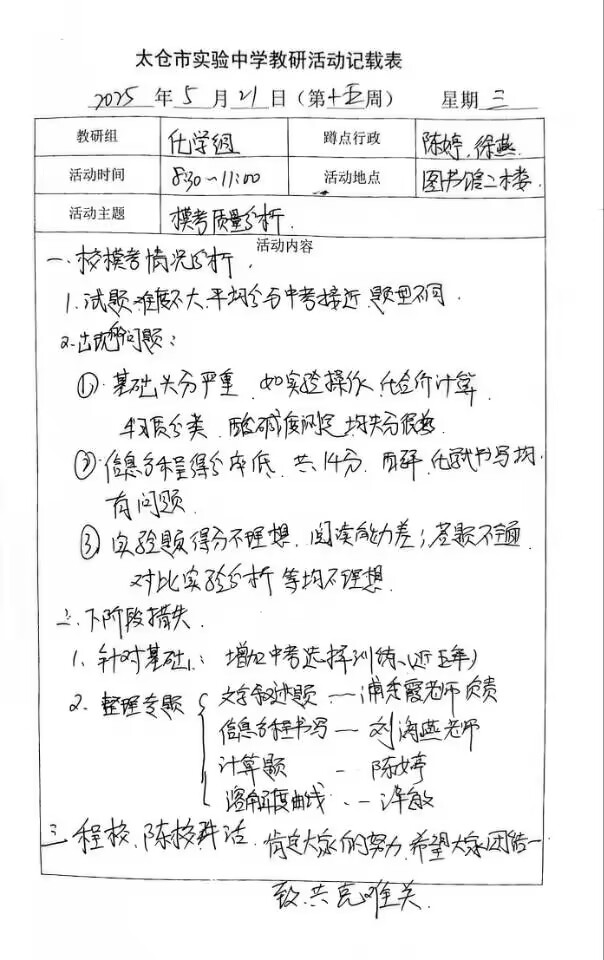 太仓市实验中学教研活动记载表
2025 年 5 月 21 日（第十五周） 星期 三
教研组 化学组 蹲点行政 陈婷、徐燕
活动时间 8:30～11:00 活动地点 图书馆二楼
活动主题 模考质量分析
活动内容
一、校模考情况分析.
1.试题:难度不大,平均分与中考接近,题型不同.
2.出现的问题:
① 基础失分严重,如实验操作,化合价计算
物质分类,酸碱度测定,均失分很多
② 信息方程得分率低,共14分,用碎,化学式书写均
有问题.
③ 实验题得分不理想,阅读能力差;答题不全面
对比实验分析等均不理想.
二、下阶段措失
1. 针对基础: 增加中考选择训练(近五年)
2. 整理专题 文字叙述题 — 老师负责
信息方程书写 — 刘海燕老师
计算题 — 陈婷
溶解度曲线 — 许敏
三 程校、陈校讲话. 肯定大家的努力,希望大家团结一
致,共克难关.